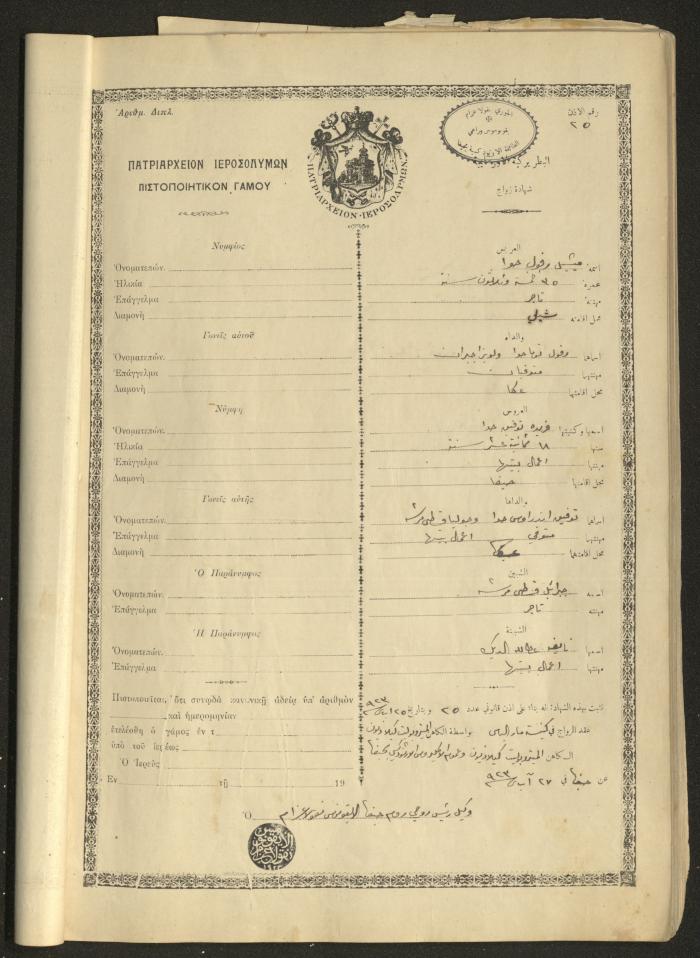 Ἀριθμ. Διπλ.
ΠΑΤΡΙΑΡΧΕΙΟΝ ΙΕΡΟΣΟΛΥΜΩΝ
ΠΙΣΤΟΠΟΙΗΤΙΚΟΝ ΓΑΜΟΥ
ΠΑΤΡΙΑΡΧΕΙΟΝ·ΙΕΡΟΣΟΛΥΜΩΝ
رقم الاذن
٢٥
شهادة زواج
Νυμφίος
Ὀνοματεπών.
Ἡλικία
Ἐπάγγελμα
Διαμονὴ
Γονεῖς αὐτοῦ
Ὀνοματεπών.
Ἐπάγγελμα
Διαμονὴ
Νύμφη
Ὀνοματεπών.
Ἡλικία
Ἐπάγγελμα
Διαμονὴ
Γονεῖς αὐτῆς
Ὀνοματεπών.
Ἐπάγγελμα
Διαμονὴ
Ὁ Παράνυμφος
Ὀνοματεπών.
Ἐπάγγελμα
Ἡ Παράνυμφος
Ὀνοματεπών.
Ἐπάγγελμα
Πιστοποιεῖται, ὅτι συνῳδὰ κανονικῇ ἀδείᾳ ὑπ' ἀριθμὸν
καὶ ἡμερομηνίαν
ἐτελέσθη ὁ γάμος ἐν τ
ὑπὸ τοῦ ἱερέως
Ὁ Ἱερεὺς
Ἐν τῇ 19
Ὁ
العريس
اسمه ميشيل روفول حوا
عمره ٣٥ خمسة وثلاثون سنة
مهنته تاجر
محل اقامته
والداه
اسماهما روفول توما حوا ولويزا جبران
مهنتهما متوفيان
محل اقامتهما عكا
العروس
اسمها وكنيتها فريده توفيق حوا
سنها ١٨ ثمانية عشر سنة
مهنتها اعمال بيتها
محل اقامتها حيفا
والداها
اسماهما توفيق اندراوس حوا وجوليا
مهنتهما متوفي اعمال بيتها
محل اقامتهما عكا
الشبين
اسمه جبرائيل
مهنته تاجر
الشبينة
اسمها نايفه
مهنتها اعمال بيتها
تثبت بهذه الشهادة انه بناء على اذن قانوني عدد ٢٥ وبتاريخ ٢٥ آب ٩٢٣
عقد الزواج في كنيسة مار الياس بواسطة الكاهن
الكاهن
عن حيفا في ٢٧ آب ٩٢٣
وكيل رئيس روحي روم حيفا